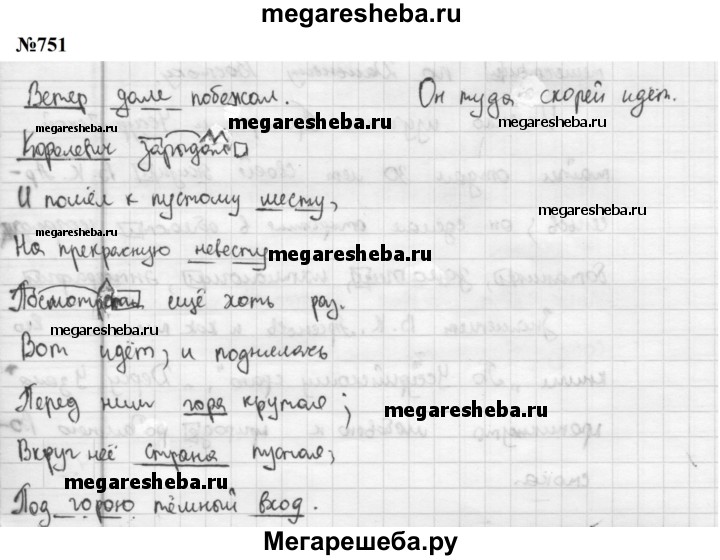 megaresheba.ru
№751
Ветер дале побежал. Он туда скорей идёт.
megaresheba.ru megaresheba.ru
Королевич зарыдал
И пошёл к пустому месту,
megaresheba.ru
На прекрасную невесту
megaresheba.ru
Посмотреть ещё хоть раз.
megaresheba.ru
Вот идёт; и поднялась
Перед ним гора крутая;
megaresheba.ru
Вкруг неё страна пустая;
megaresheba.ru
Под горою тёмный вход.
Мегарешеба.ру